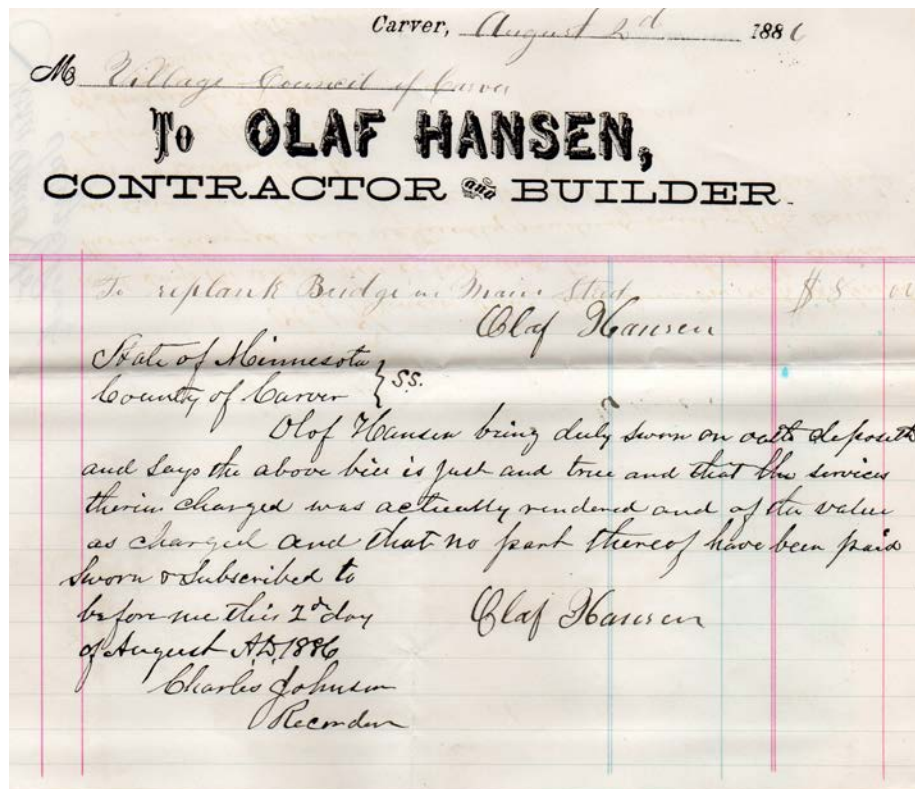 Carver, August 2d 1886
M Village Council of Carver
To OLAF HANSEN,
CONTRACTOR and BUILDER.
To replank Bridge on Main Street $8 00
Olaf Hansen
State of Minnesota
County of Carver } SS.
Olof Hansen being duly sworn on oath deposeth
and says the above bill is just and true and that the services
therein charged was actually rendered and of the value
as charged and that no part thereof have been paid
Sworn & Subscribed to
before me this 2d day
of August A.D. 1886
Olaf Hansen
Charles Johnson
Recorder